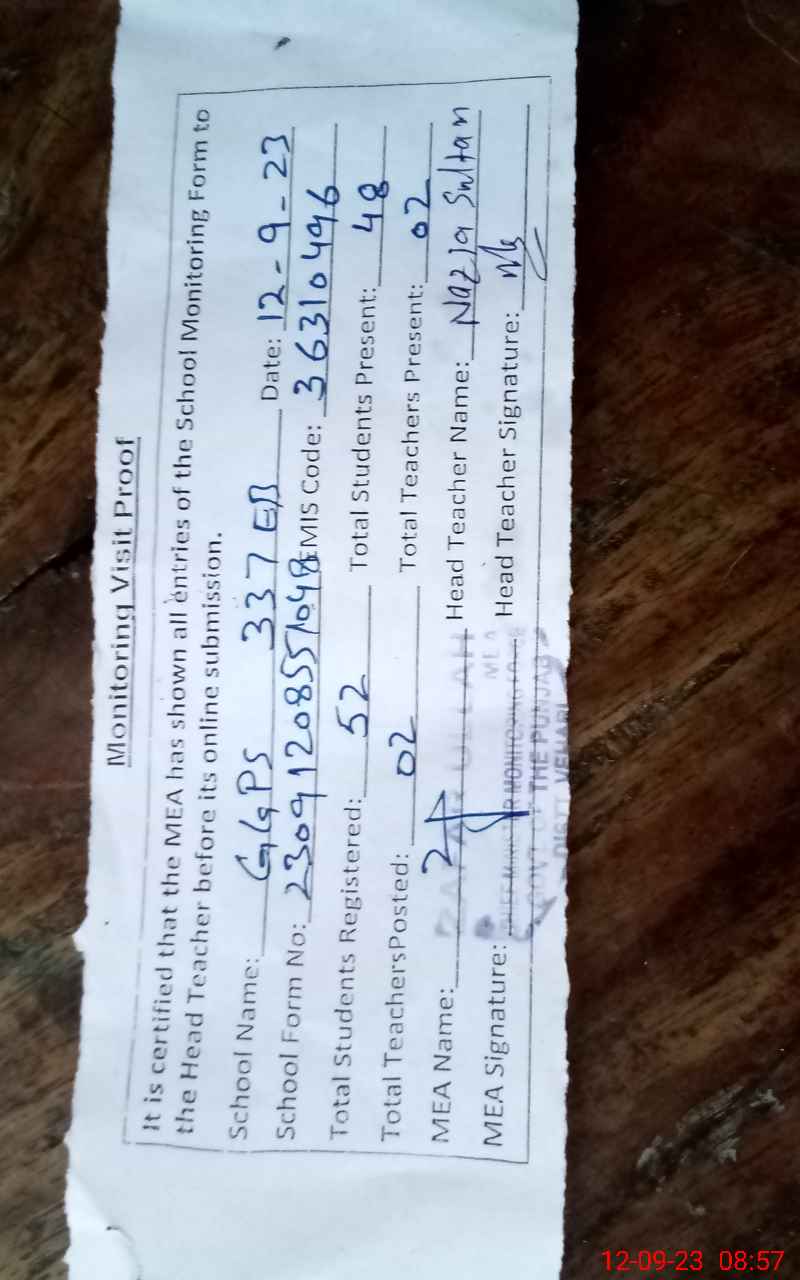 Monitoring Visit Proof
It is certified that the MEA has shown all entries of the School Monitoring Form to
the Head Teacher before its online submission.
School Name: GGPS 337 EB Date: 12-9-23
School Form No: 23091208551048 EMIS Code: 36310496
Total Students Registered: 52 Total Students Present: 48
Total TeachersPosted: 02 Total Teachers Present: 02
MEA Name: Head Teacher Name: Nazia Sultan
MEA Signature: Head Teacher Signature:
ULLAH
MEA
CHIEF MINISTER MONITORING FORCE
GOVT OF THE PUNJAB
DISTT. VEHARI
12-09-23 08:57